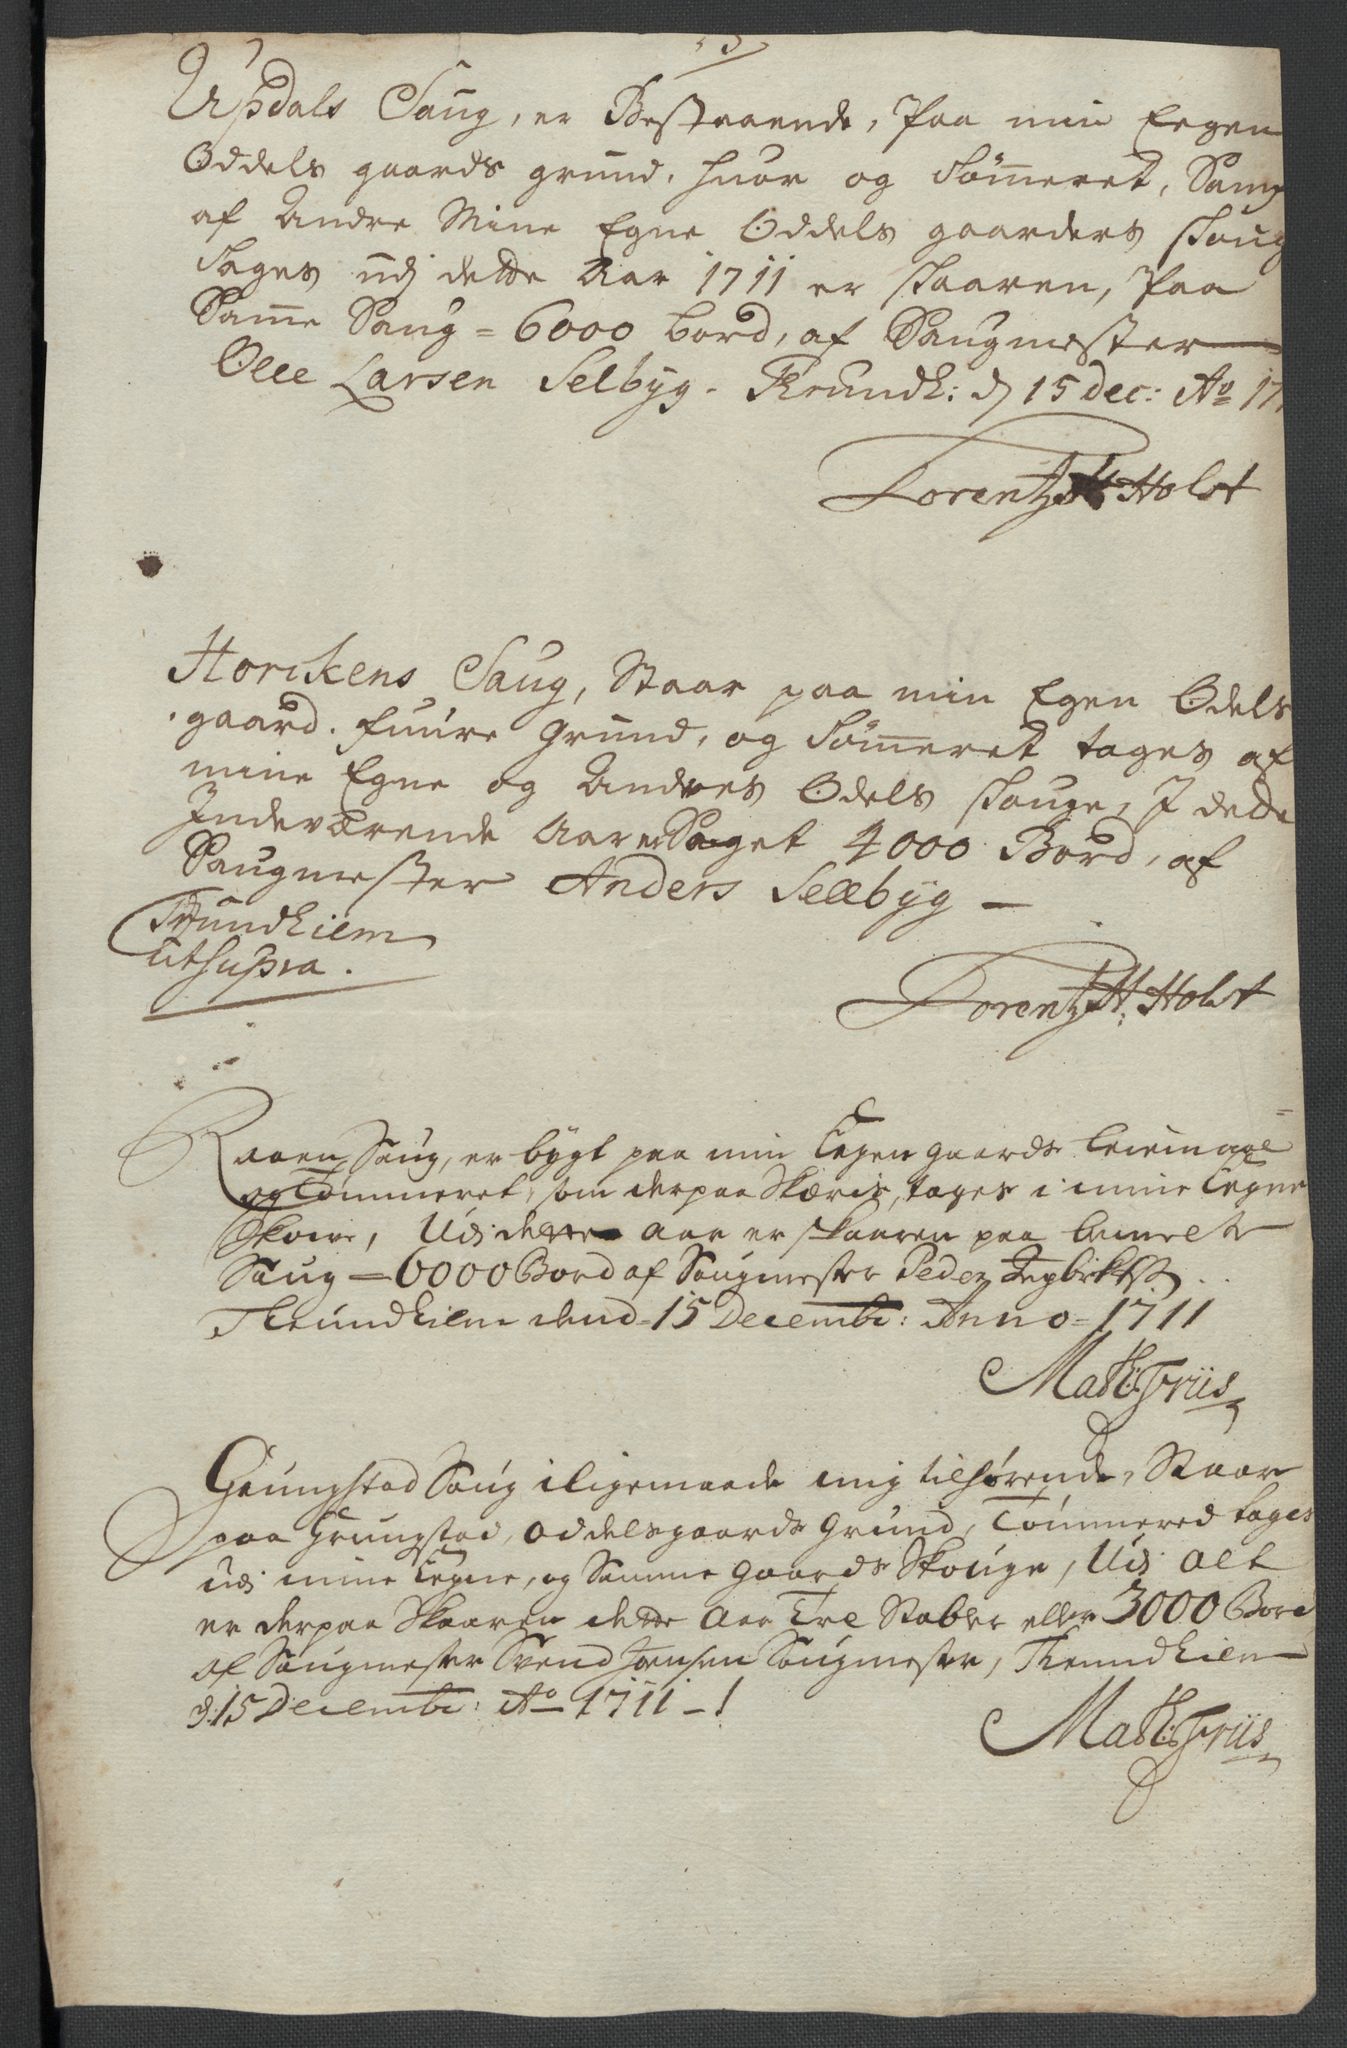 Updals Saug, er Bestaaende, Paa min Eegen
Oddels gaards grund, huor og Tømeret, Samt
af Andre Mine Egne Oddels gaarders skoug
tages udj dette Aar 1711 er skaaren, Paa
Samme Saug = 6000 bord, af Saugmester
Olle Larsen Selbyg. Trundh: d 15 Dec: Ao 17
Lorentz M Holst
Horckens Saug, Staar paa min Egen Odels
gaard. fuure Grund, og Tømeret tages af
mine Egne og Andres Odels skouge, I dette
Indeværende Aar er Saget 4000 Bord, af
Saugmester Anders Selbyg
Trundhiem
ut supra.
Lorentz M: Holst
Raaen Saug, er bygt paa min Eegen gaards
og Tømmeret, som derpaa Skæris, tages i mine Eegne
Skove, Udj dette Aar er skaaren paa bemelte
Saug = 6000 Bord af Saugmester Peder
Trundhiem dend 15 Decembr: Anno = 1711
Math: Friis
Grungstad Saug iligemaade mig tilhørende, Staar
paa Grungstad, Oddelsgaards Grund, Tømmered tages
udj mine Eegne, og Samme Gaards Skouge, Udj alt
er derpaa Skaaren dette Aar Tre Stabler eller 3000 Bord
af Saugmester Svend Jensen Saugmester, Trundhiem
d: 15 Decembr: Ao 1711
Math: Friis